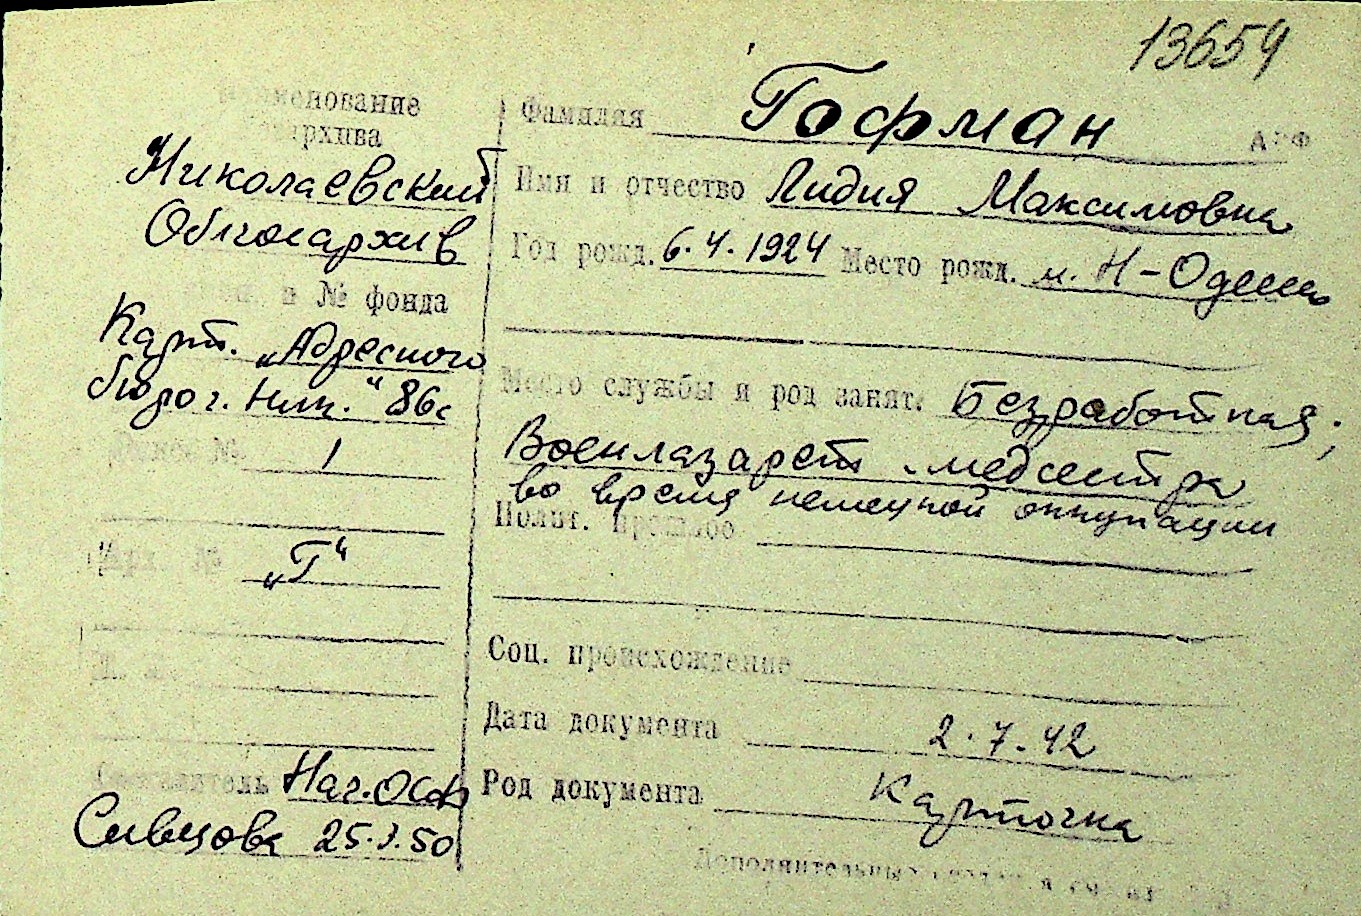 13659
Наименование
архива
Николаевский
Облгосархив
и № фонда
Карт. „Адресного
бюро г. Ник." 86с
1
Арх. №
„Г"
Составитель Нач. ОСФ
Сивцова 25.3.50
Фамилия Гофман
Имя и отчество Лидия Максимовна
Год рожд. 6.4.1924 Место рожд. м. Н-Одесса
Место службы и род занят. Безработная;
Военлазарет медсестра
во время немецкой оккупации
Полит. прошлое
Соц. происхождение
Дата документа 2.7.42
Род документа Карточка
Дополнительные